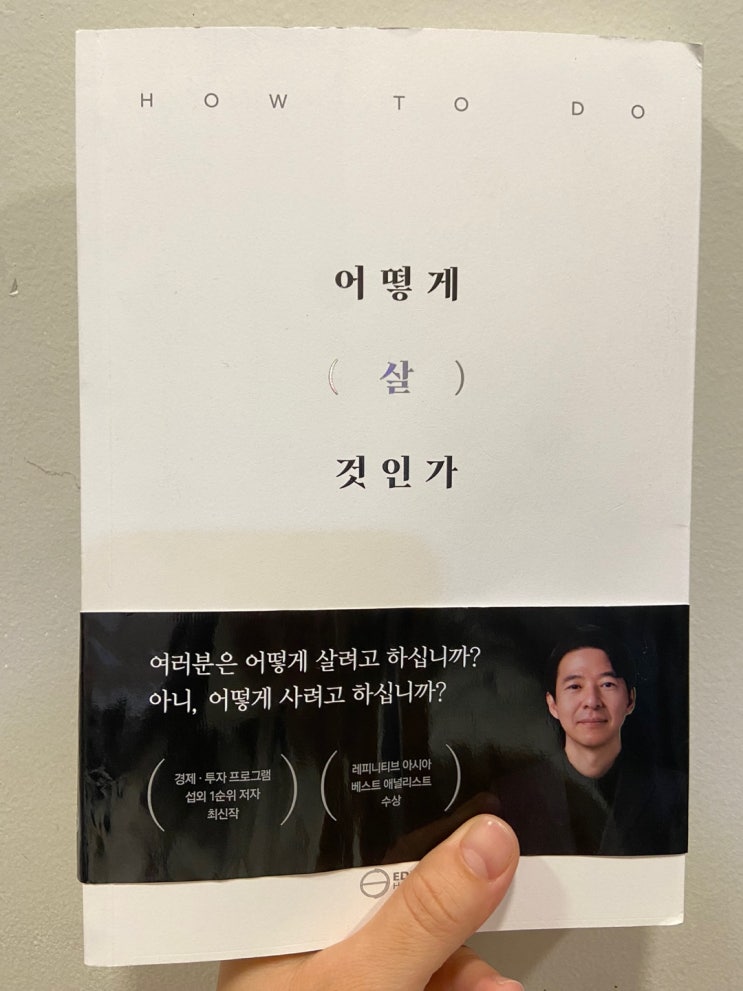 HOW TO DO
어떻게
( 살 )
것인가
여러분은 어떻게 살려고 하십니까?
아니, 어떻게 사려고 하십니까?
경제 · 투자 프로그램
섭외 1순위 저자
최신작
레피니티브 아시아
베스트 애널리스트
수상